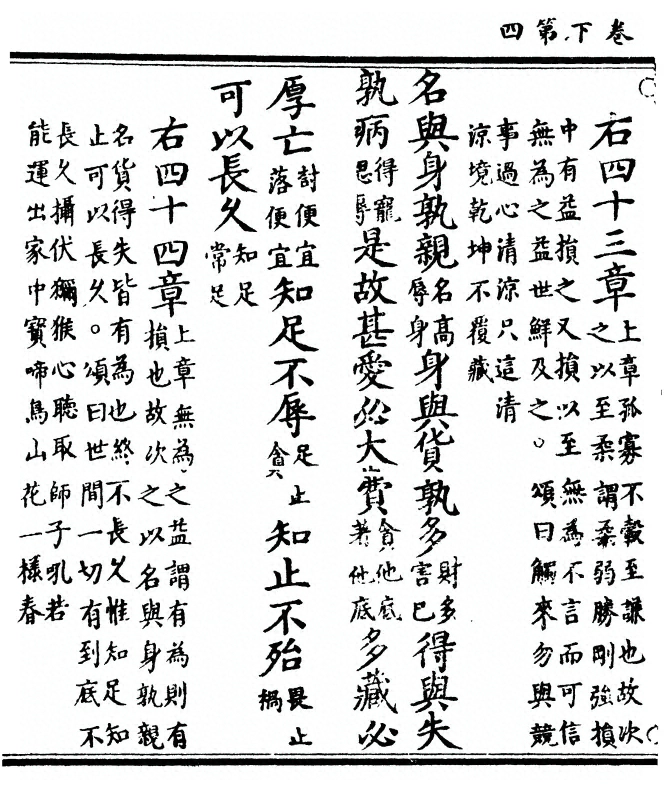 卷下第四
右四十三章上章孤寡不穀至謙也故次
之以至柔謂柔弱勝剛強損
中有益損之又損以至無為不言而可信
無為之益世鮮及之。頌曰觸來勿與競
事過心清涼只這清
涼境乾坤不覆藏
名與身孰親名高辱身身與貨孰多財多害已得與失
孰病得寵思辱是故甚愛必大費貪他底著他底多藏必
厚亡討便宜落便宜知足不辱足止貪知止不殆畏止禍
可以長久知足常足
右四十四章上章無為之益謂有為則有
損也故次之以名與身孰親
名貨得失皆有為也終不長久惟知足知
止可以長久。頌曰世間一切有到底不
長久攝伏獼猴心聽取師子吼若
能運出家中寶啼鳥山花一樣春